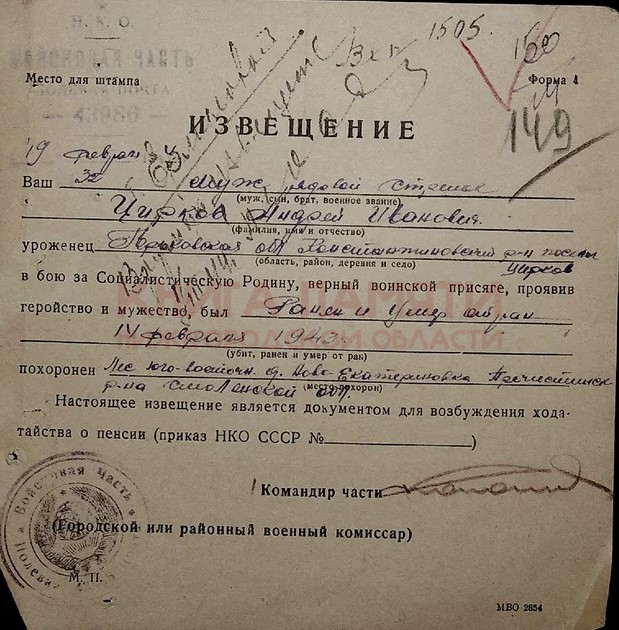 Н. К. О.
ПОЛЕВАЯ ПОЧТА
— 43986 —
Вх 1505.
150
Место для штампа
Форма 4
149
ИЗВЕЩЕНИЕ
19 феврал
Ваш муж рядовой стрелок
(муж, сын, брат, военное звание)
Чирков Андрей Иванович.
(фамилия, имя и отчество)
уроженец Горьковская обл Константиновский р-н
(область, район, деревня и село)
Чирков
в бою за Социалистическую Родину, верный воинской присяге, проявив
геройство и мужество, был Ранен и умер от ран
14 февраля 1943
(убит, ранен и умер от ран)
похоронен Лес юго-восточн. д. Ново-Екатериновка Пречистинск
р-на Смоленской обл.
(место похорон)
Настоящее извещение является документом для возбуждения хода-
тайства о пенсии (приказ НКО СССР №)
Командир части
(Городской или районный военный комиссар)
М. П.
Войсковая часть
Полевая
МВО 2854
КНИГА ПАМЯТИ
ОБЛАСТИ